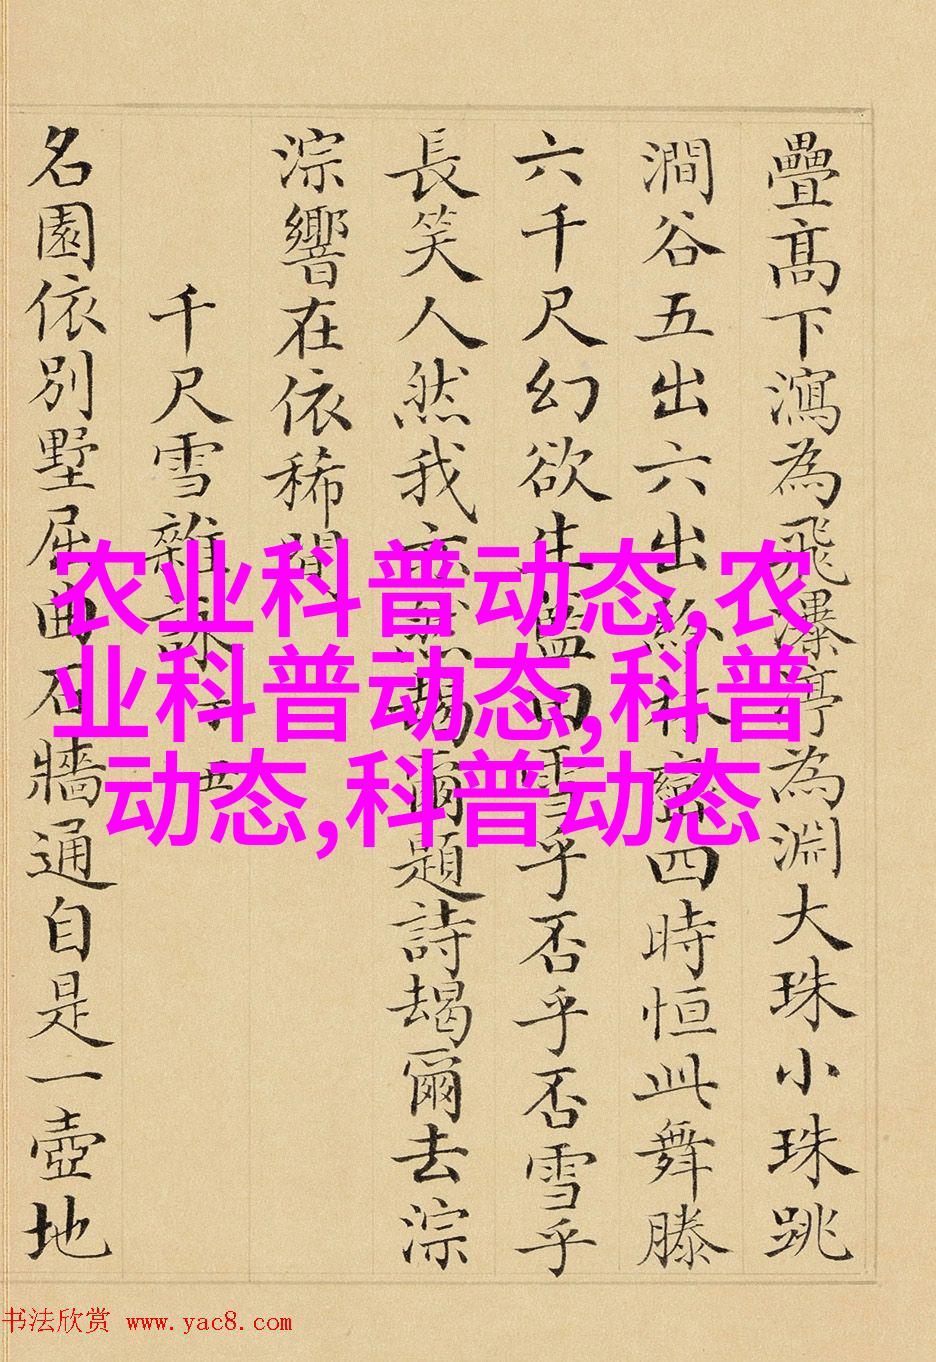 疊高下瀉為飛瀑亭為淵大珠小珠跳
澗谷五出六出紛林巒四時恒此舞滕
六千尺幻欲生藍田雪乎否乎否雪乎
長笑人然我亦然朅爾題詩朅爾去淙
淙響在依稀間
千尺雪雜詠十五
名園依別墅屈曲石牆通自是一壺地
农业科普动态,农
业科普动态,科普
动态,科普动态
书法欣赏 www.yac8.com